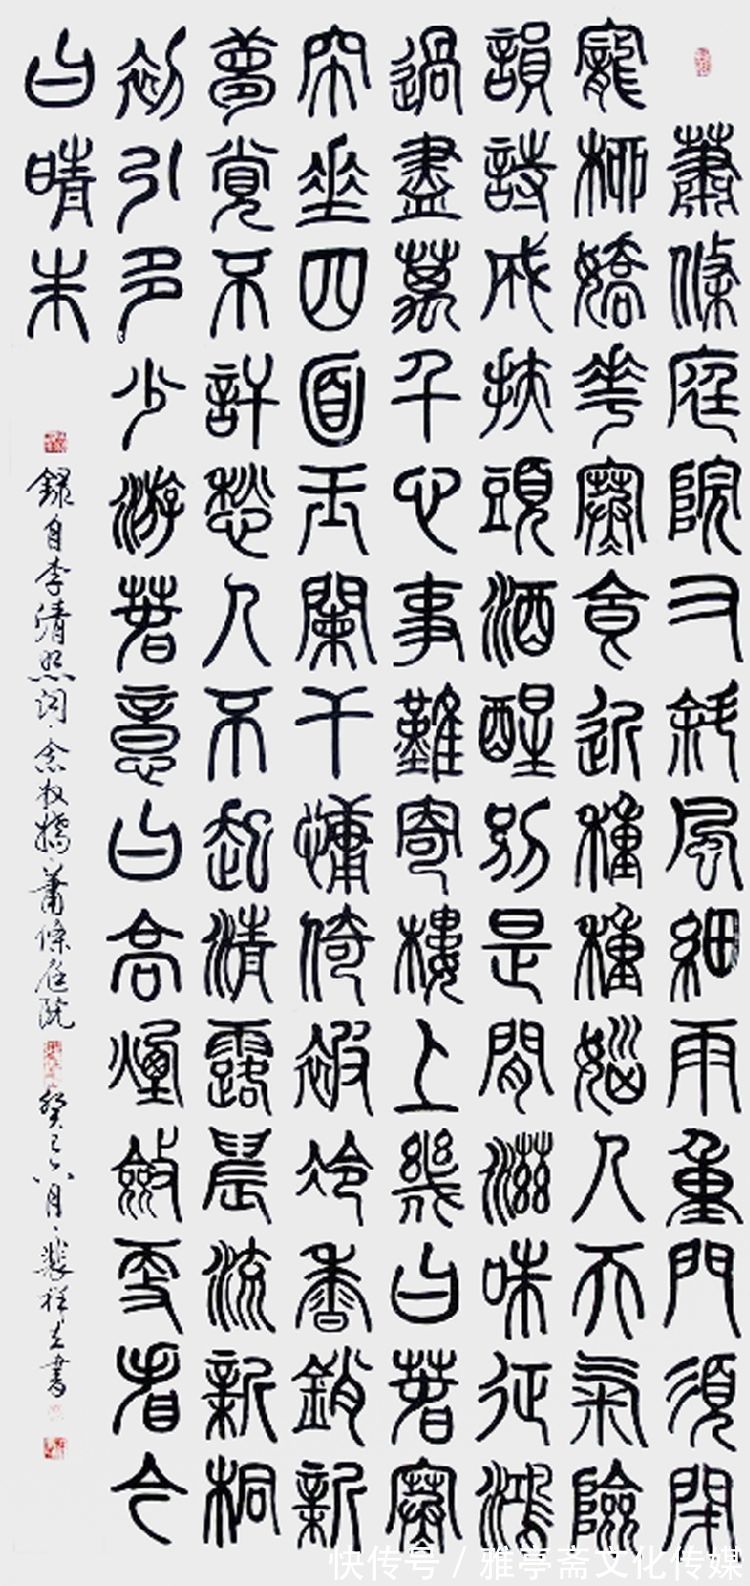 蕭條庭院又斜風細雨重門須閉
寵柳嬌花寒食近種種惱人天氣險
韻詩成扶頭酒醒別是閒滋味征鴻
過盡萬千心事難寄樓上幾日春寒
帘垂四面玉闌干慵倚被冷香銷新
夢覺不許愁人不起清露晨流新桐
初引多少游春意日高煙斂更看今
日晴未
錄自李清照詞·念奴嬌·蕭條庭院 癸巳六月·裴祥書
快传号 / 雅亭斋文化传媒